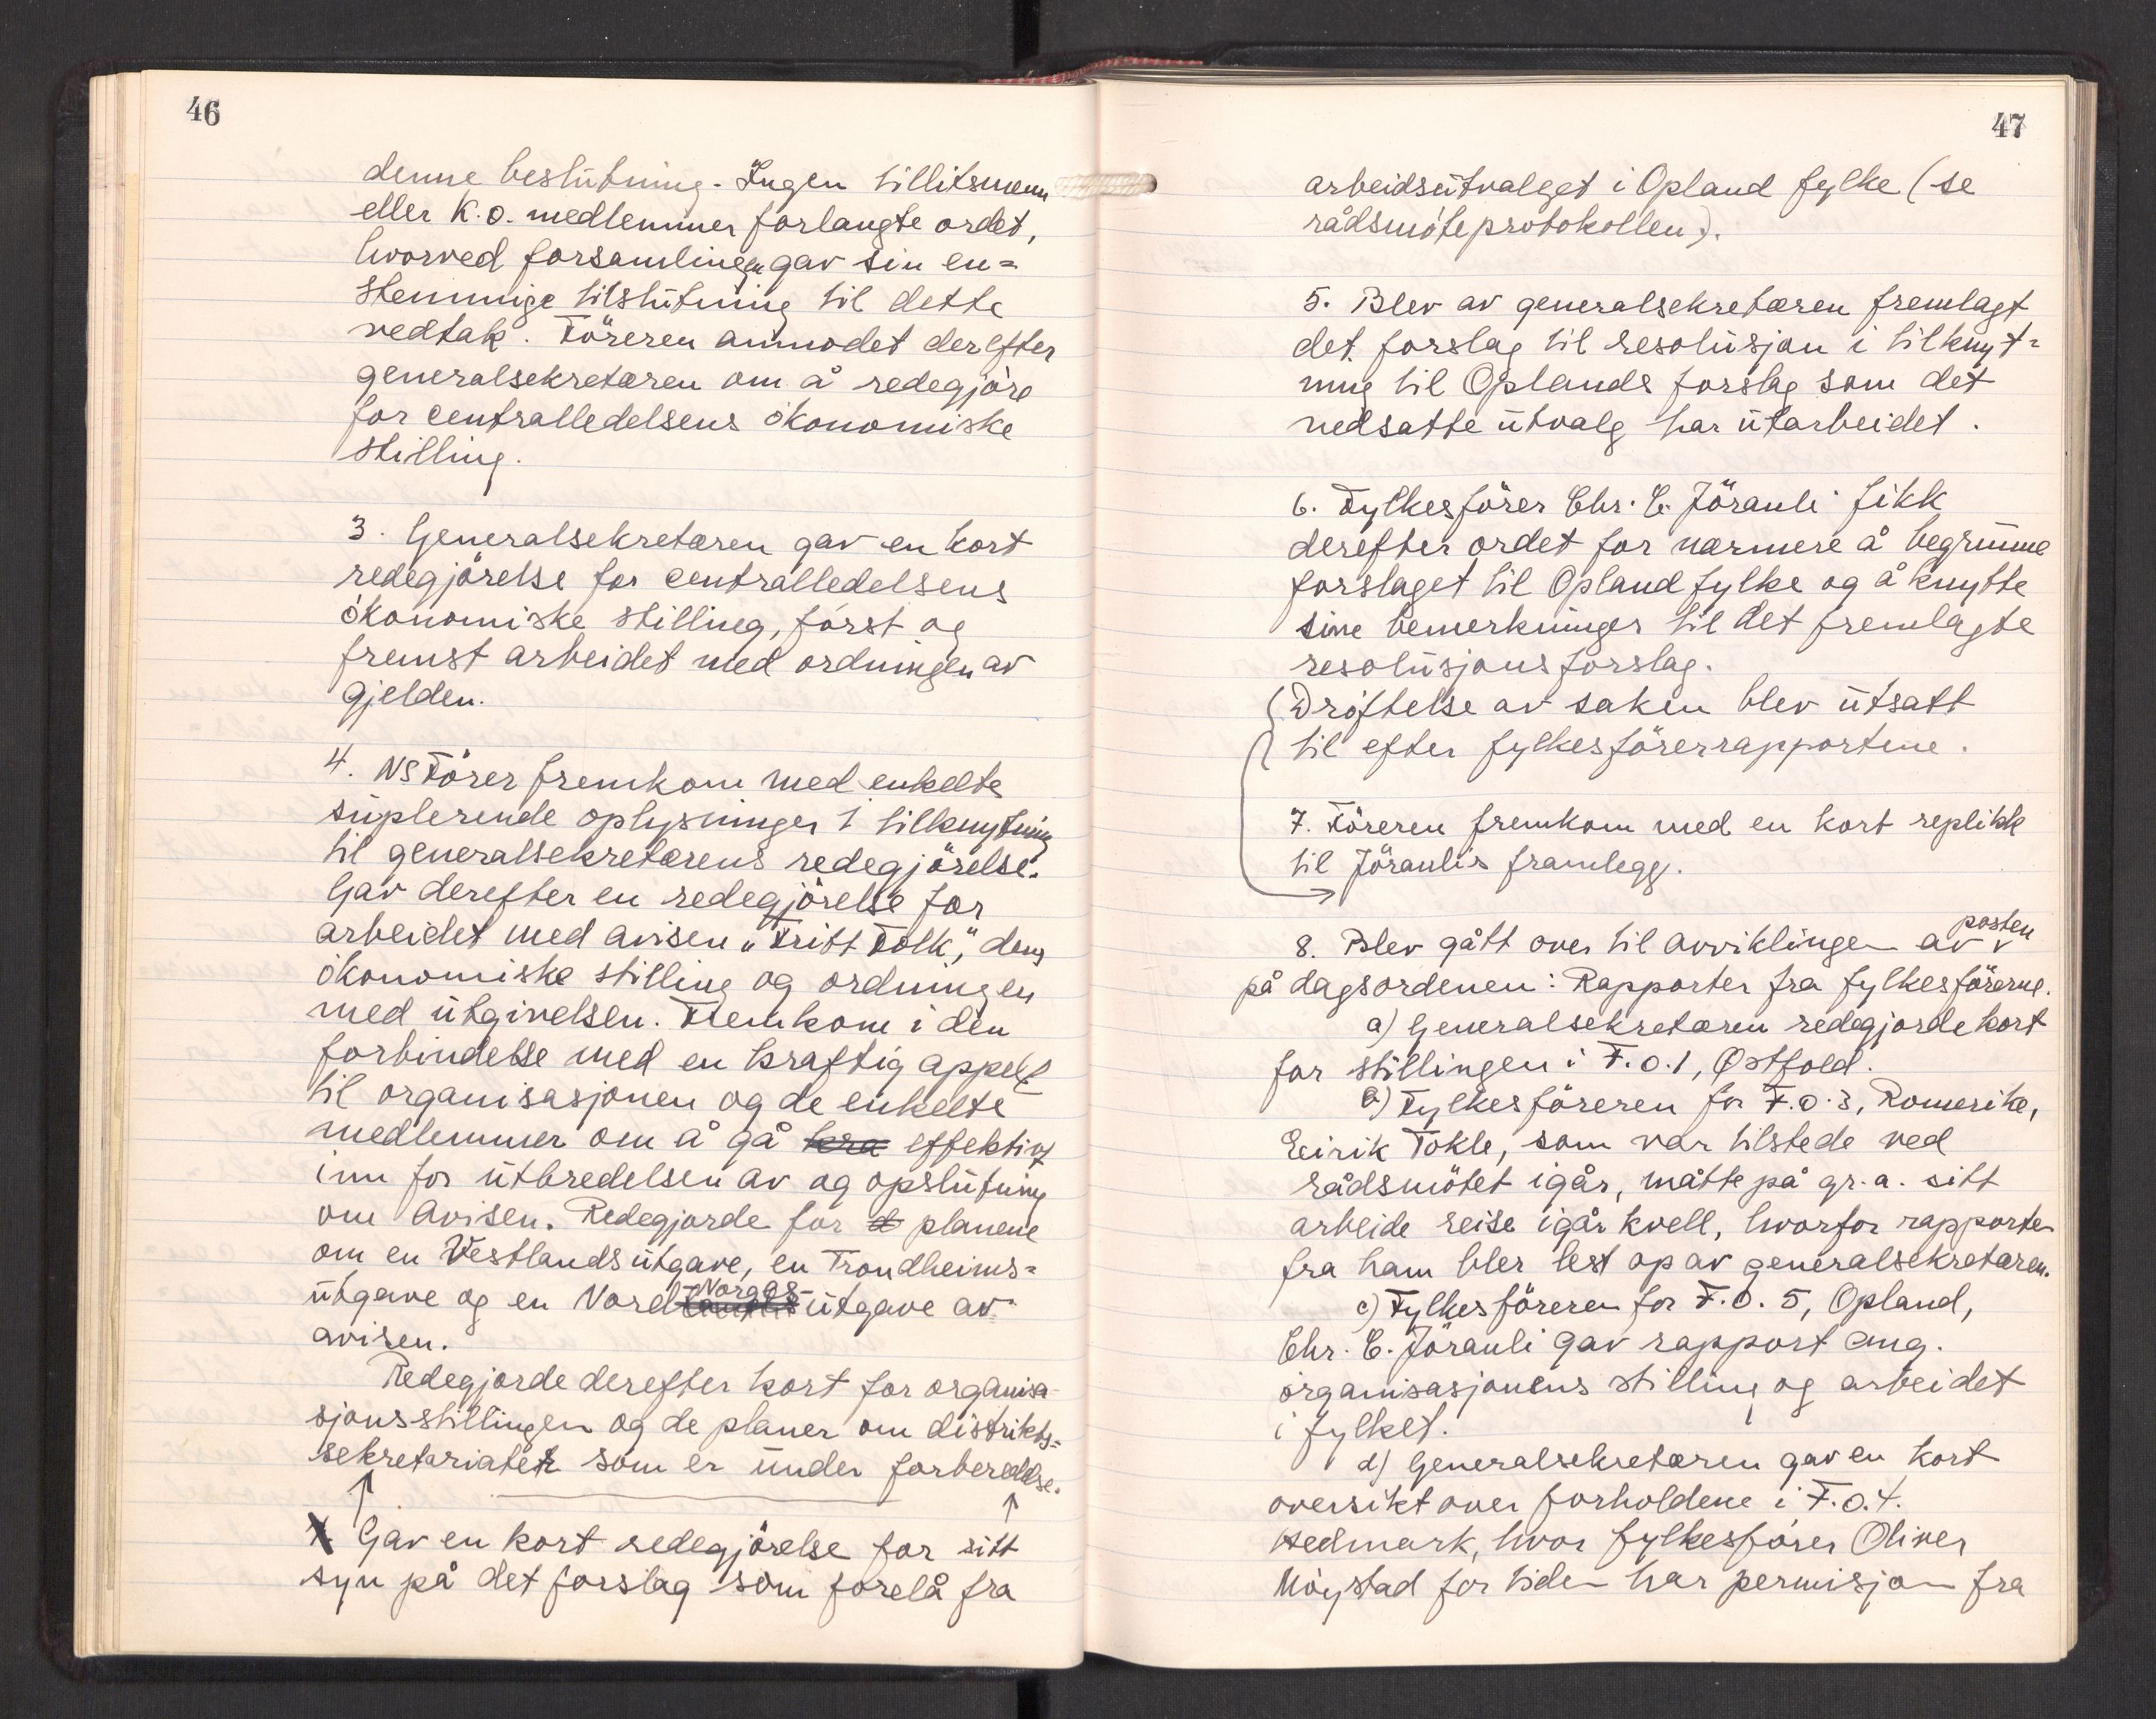 46
denne beslutning. Ingen tillitsmenn
eller K.O. medlemmer forlangte ordet,
hvorved forsamlingen gav sin en=
stemmige tilslutning til dette
vedtak. Föreren anmodet derefter
generalsekretæren om å redegjöre
for centralledelsens ökonomiske
stilling.
3. Generalsekretæren gav en kort
redegjörelse for centralledelsens
ökonomiske stilling, först og
fremst arbeidet med ordningen av
gjelden.
4. NS Förer fremkom med enkelte
suplerende oplysninger i tilknytning
til generalsekretærens redegjörelse.
Gav derefter en redegjörelse for
arbeidet med avisen „Fritt Folk", dens
ökonomiske stilling og ordningen
med utgivelsen. Fremkom i den
forbindelse med en kraftig appell
til organisasjonen og de enkelte
medlemmer om å gå kra effektivt
inn for utbredelsen av og opslutning
om avisen. Redegjorde for d planene
om en Vestlandsutgave, en Trondheims=
utgave og en Nord Norges-utgave av
avisen.
Redegjorde derefter kort for organisa-
sjonsstillingen og de planer om distrikts=
sekretariater som er under forberedelse.
Gav en kort redegjörelse for sitt
syn på det forslag som forelå fra
47
arbeidsutvalget i Opland fylke (se
rådsmöteprotokollen).
5. Blev av generalsekretæren fremlagt
det forslag til resolusjon i tilknyt=
ning til Oplands forslag som det
nedsatte utvalg har utarbeidet.
6. Fylkesförer Chr. E. Jöranli fikk
derefter ordet for nærmere å begrunne
forslaget til Opland fylke og å knytte
sine bemerkninger til det fremlagte
resolusjonsforslag.
(Dröftelse av saken blev utsatt
til efter fylkesförerrapportene.
7. Föreren fremkom med en kort replikk
til Jöranlis framlegg.
8. Blev gått over til avviklingen av posten
på dagsordenen: Rapporter fra fylkesförerne.
a) Generalsekretæren redegjorde kort
for stillingen i F.O.1, Østfold.
b) Fylkesföreren for F.O.3, Romerike,
Eirik Tokle, som var tilstede ved
rådsmötet igår, måtte på gr. a. sitt
arbeide reise igår kvell, hvorfor rapporten
fra ham blev lest op av generalsekretæren.
c) Fylkesföreren for F.O. 5, Opland,
Chr. E. Jöranli gav rapport ang.
organisasjonens stilling og arbeidet
i fylket.
d) Generalsekretæren gav en kort
oversikt over forholdene i F.O.4.
Hedmark, hvor fylkesförer Oliver
Möystad for tiden har permisjon fra